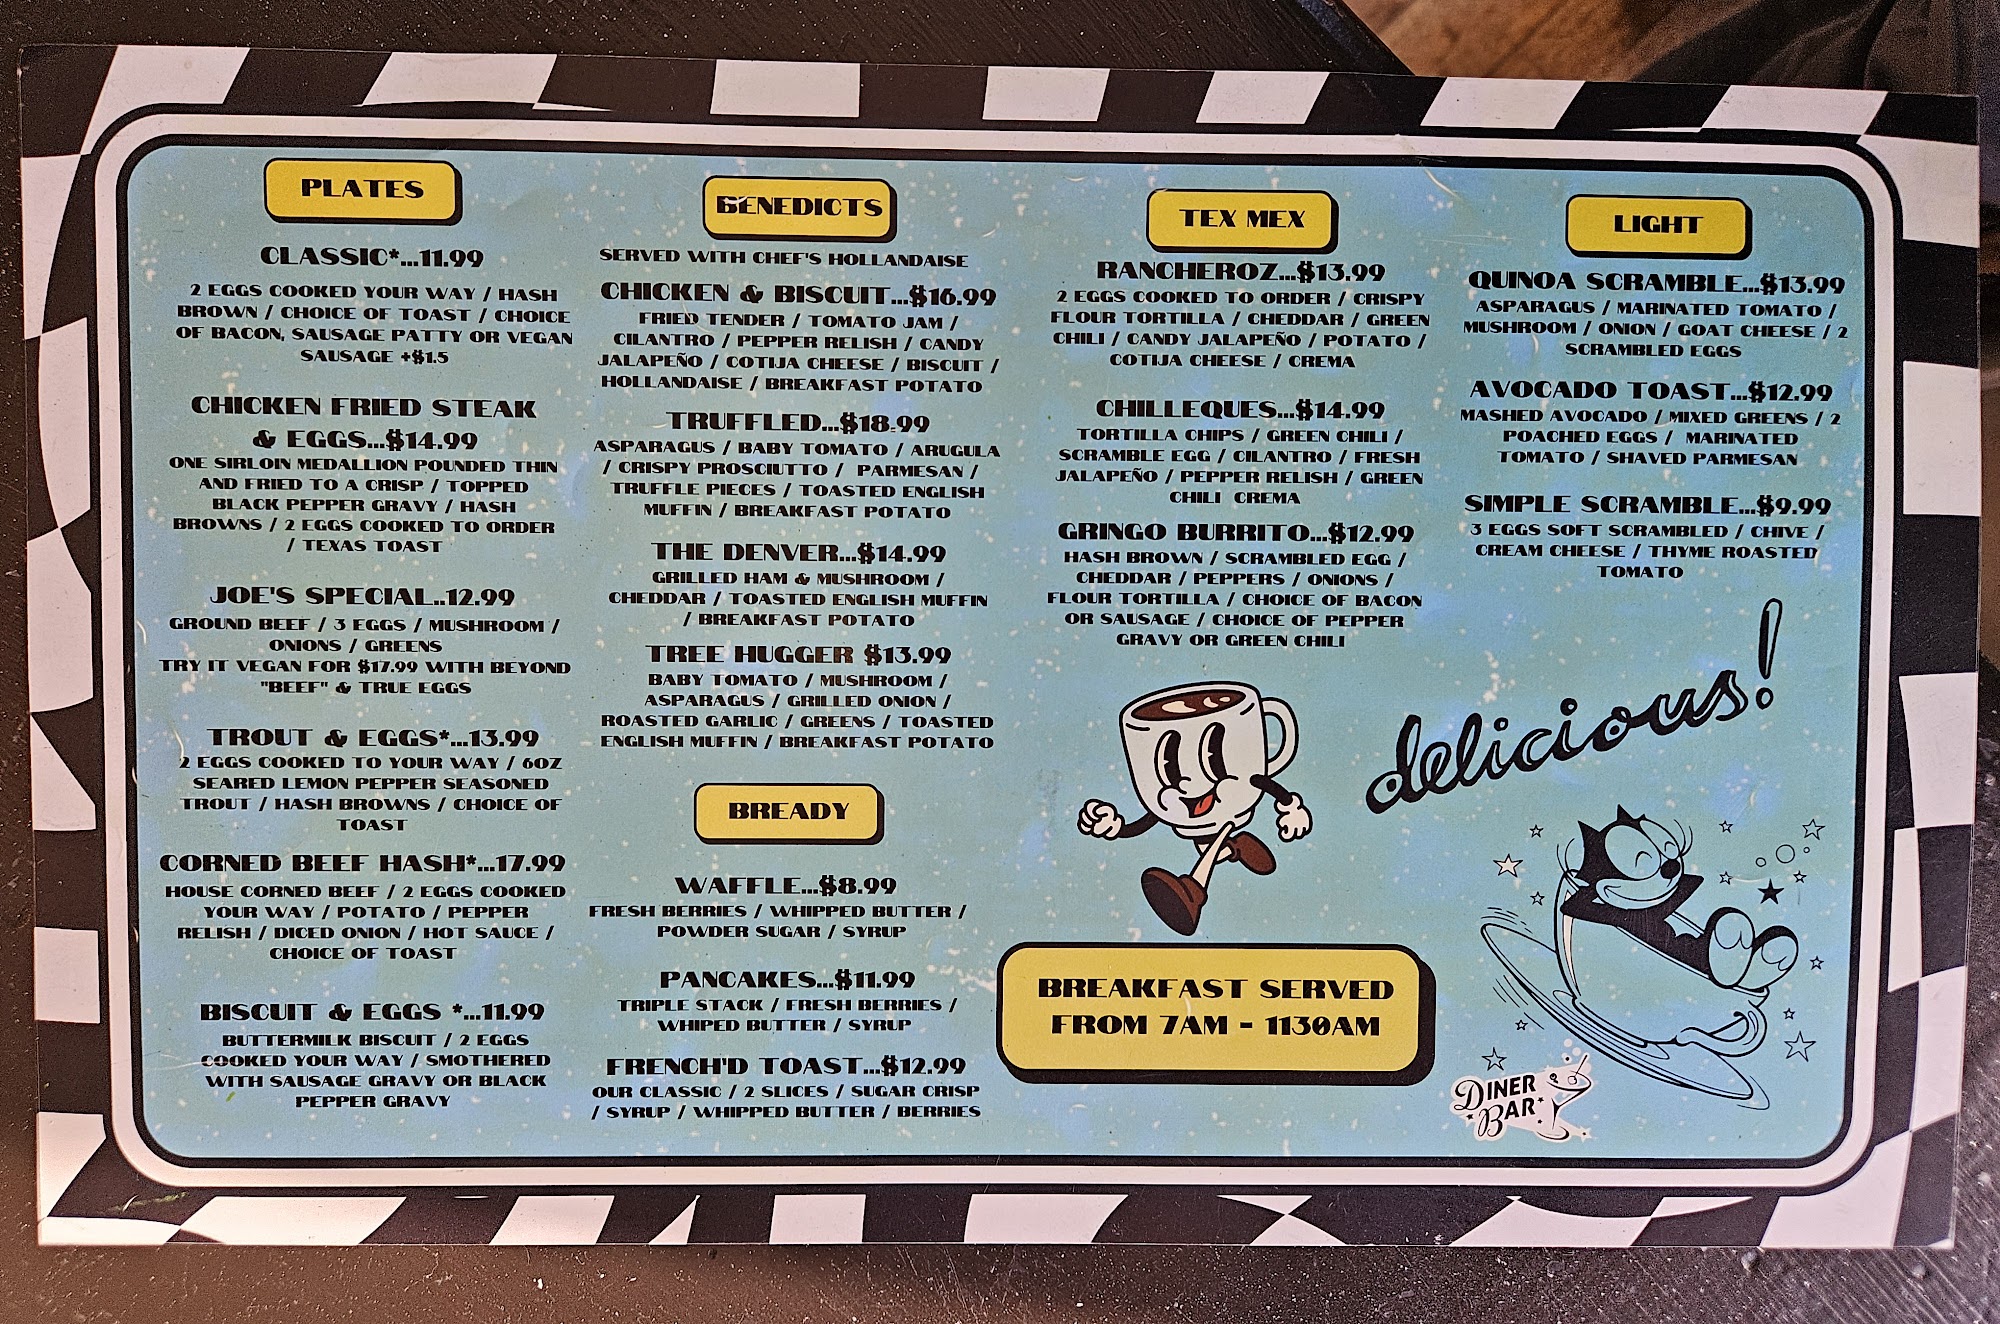 PLATES
CLASSIC*...11.99
2 EGGS COOKED YOUR WAY / HASH
BROWN / CHOICE OF TOAST / CHOICE
OF BACON, SAUSAGE PATTY OR VEGAN
SAUSAGE +$1.5
CHICKEN FRIED STEAK
& EGGS...$14.99
ONE SIRLOIN MEDALLION POUNDED THIN
AND FRIED TO A CRISP / TOPPED
BLACK PEPPER GRAVY / HASH
BROWNS / 2 EGGS COOKED TO ORDER
/ TEXAS TOAST
JOE'S SPECIAL..12.99
GROUND BEEF / 3 EGGS / MUSHROOM /
ONIONS / GREENS
TRY IT VEGAN FOR $17.99 WITH BEYOND
"BEEF" & TRUE EGGS
TROUT & EGGS*...13.99
2 EGGS COOKED TO YOUR WAY / 6OZ
SEARED LEMON PEPPER SEASONED
TROUT / HASH BROWNS / CHOICE OF
TOAST
CORNED BEEF HASH*...17.99
HOUSE CORNED BEEF / 2 EGGS COOKED
YOUR WAY / POTATO / PEPPER
RELISH / DICED ONION / HOT SAUCE /
CHOICE OF TOAST
BISCUIT & EGGS *...11.99
BUTTERMILK BISCUIT / 2 EGGS
COOKED YOUR WAY / SMOTHERED
WITH SAUSAGE GRAVY OR BLACK
PEPPER GRAVY
BENEDICTS
SERVED WITH CHEF'S HOLLANDAISE
CHICKEN & BISCUIT...$16.99
FRIED TENDER / TOMATO JAM /
CILANTRO / PEPPER RELISH / CANDY
JALAPEÑO / COTIJA CHEESE / BISCUIT /
HOLLANDAISE / BREAKFAST POTATO
TRUFFLED...$18.99
ASPARAGUS / BABY TOMATO / ARUGULA
/ CRISPY PROSCIUTTO / PARMESAN /
TRUFFLE PIECES / TOASTED ENGLISH
MUFFIN / BREAKFAST POTATO
THE DENVER...$14.99
GRILLED HAM & MUSHROOM /
CHEDDAR / TOASTED ENGLISH MUFFIN
/ BREAKFAST POTATO
TREE HUGGER $13.99
BABY TOMATO / MUSHROOM /
ASPARAGUS / GRILLED ONION /
ROASTED GARLIC / GREENS / TOASTED
ENGLISH MUFFIN / BREAKFAST POTATO
BREADY
WAFFLE...$8.99
FRESH BERRIES / WHIPPED BUTTER /
POWDER SUGAR / SYRUP
PANCAKES...$11.99
TRIPLE STACK / FRESH BERRIES /
WHIPED BUTTER / SYRUP
FRENCH'D TOAST...$12.99
OUR CLASSIC / 2 SLICES / SUGAR CRISP
/ SYRUP / WHIPPED BUTTER / BERRIES
TEX MEX
RANCHEROZ...$13.99
2 EGGS COOKED TO ORDER / CRISPY
FLOUR TORTILLA / CHEDDAR / GREEN
CHILI / CANDY JALAPEÑO / POTATO /
COTIJA CHEESE / CREMA
CHILLEQUES...$14.99
TORTILLA CHIPS / GREEN CHILI /
SCRAMBLE EGG / CILANTRO / FRESH
JALAPEÑO / PEPPER RELISH / GREEN
CHILI CREMA
GRINGO BURRITO...$12.99
HASH BROWN / SCRAMBLED EGG /
CHEDDAR / PEPPERS / ONIONS /
FLOUR TORTILLA / CHOICE OF BACON
OR SAUSAGE / CHOICE OF PEPPER
GRAVY OR GREEN CHILI
BREAKFAST SERVED
FROM 7AM - 1130AM
LIGHT
QUINOA SCRAMBLE...$13.99
ASPARAGUS / MARINATED TOMATO /
MUSHROOM / ONION / GOAT CHEESE / 2
SCRAMBLED EGGS
AVOCADO TOAST...$12.99
MASHED AVOCADO / MIXED GREENS / 2
POACHED EGGS / MARINATED
TOMATO / SHAVED PARMESAN
SIMPLE SCRAMBLE...$9.99
3 EGGS SOFT SCRAMBLED / CHIVE /
CREAM CHEESE / THYME ROASTED
TOMATO
delicious!
DINER
BAR